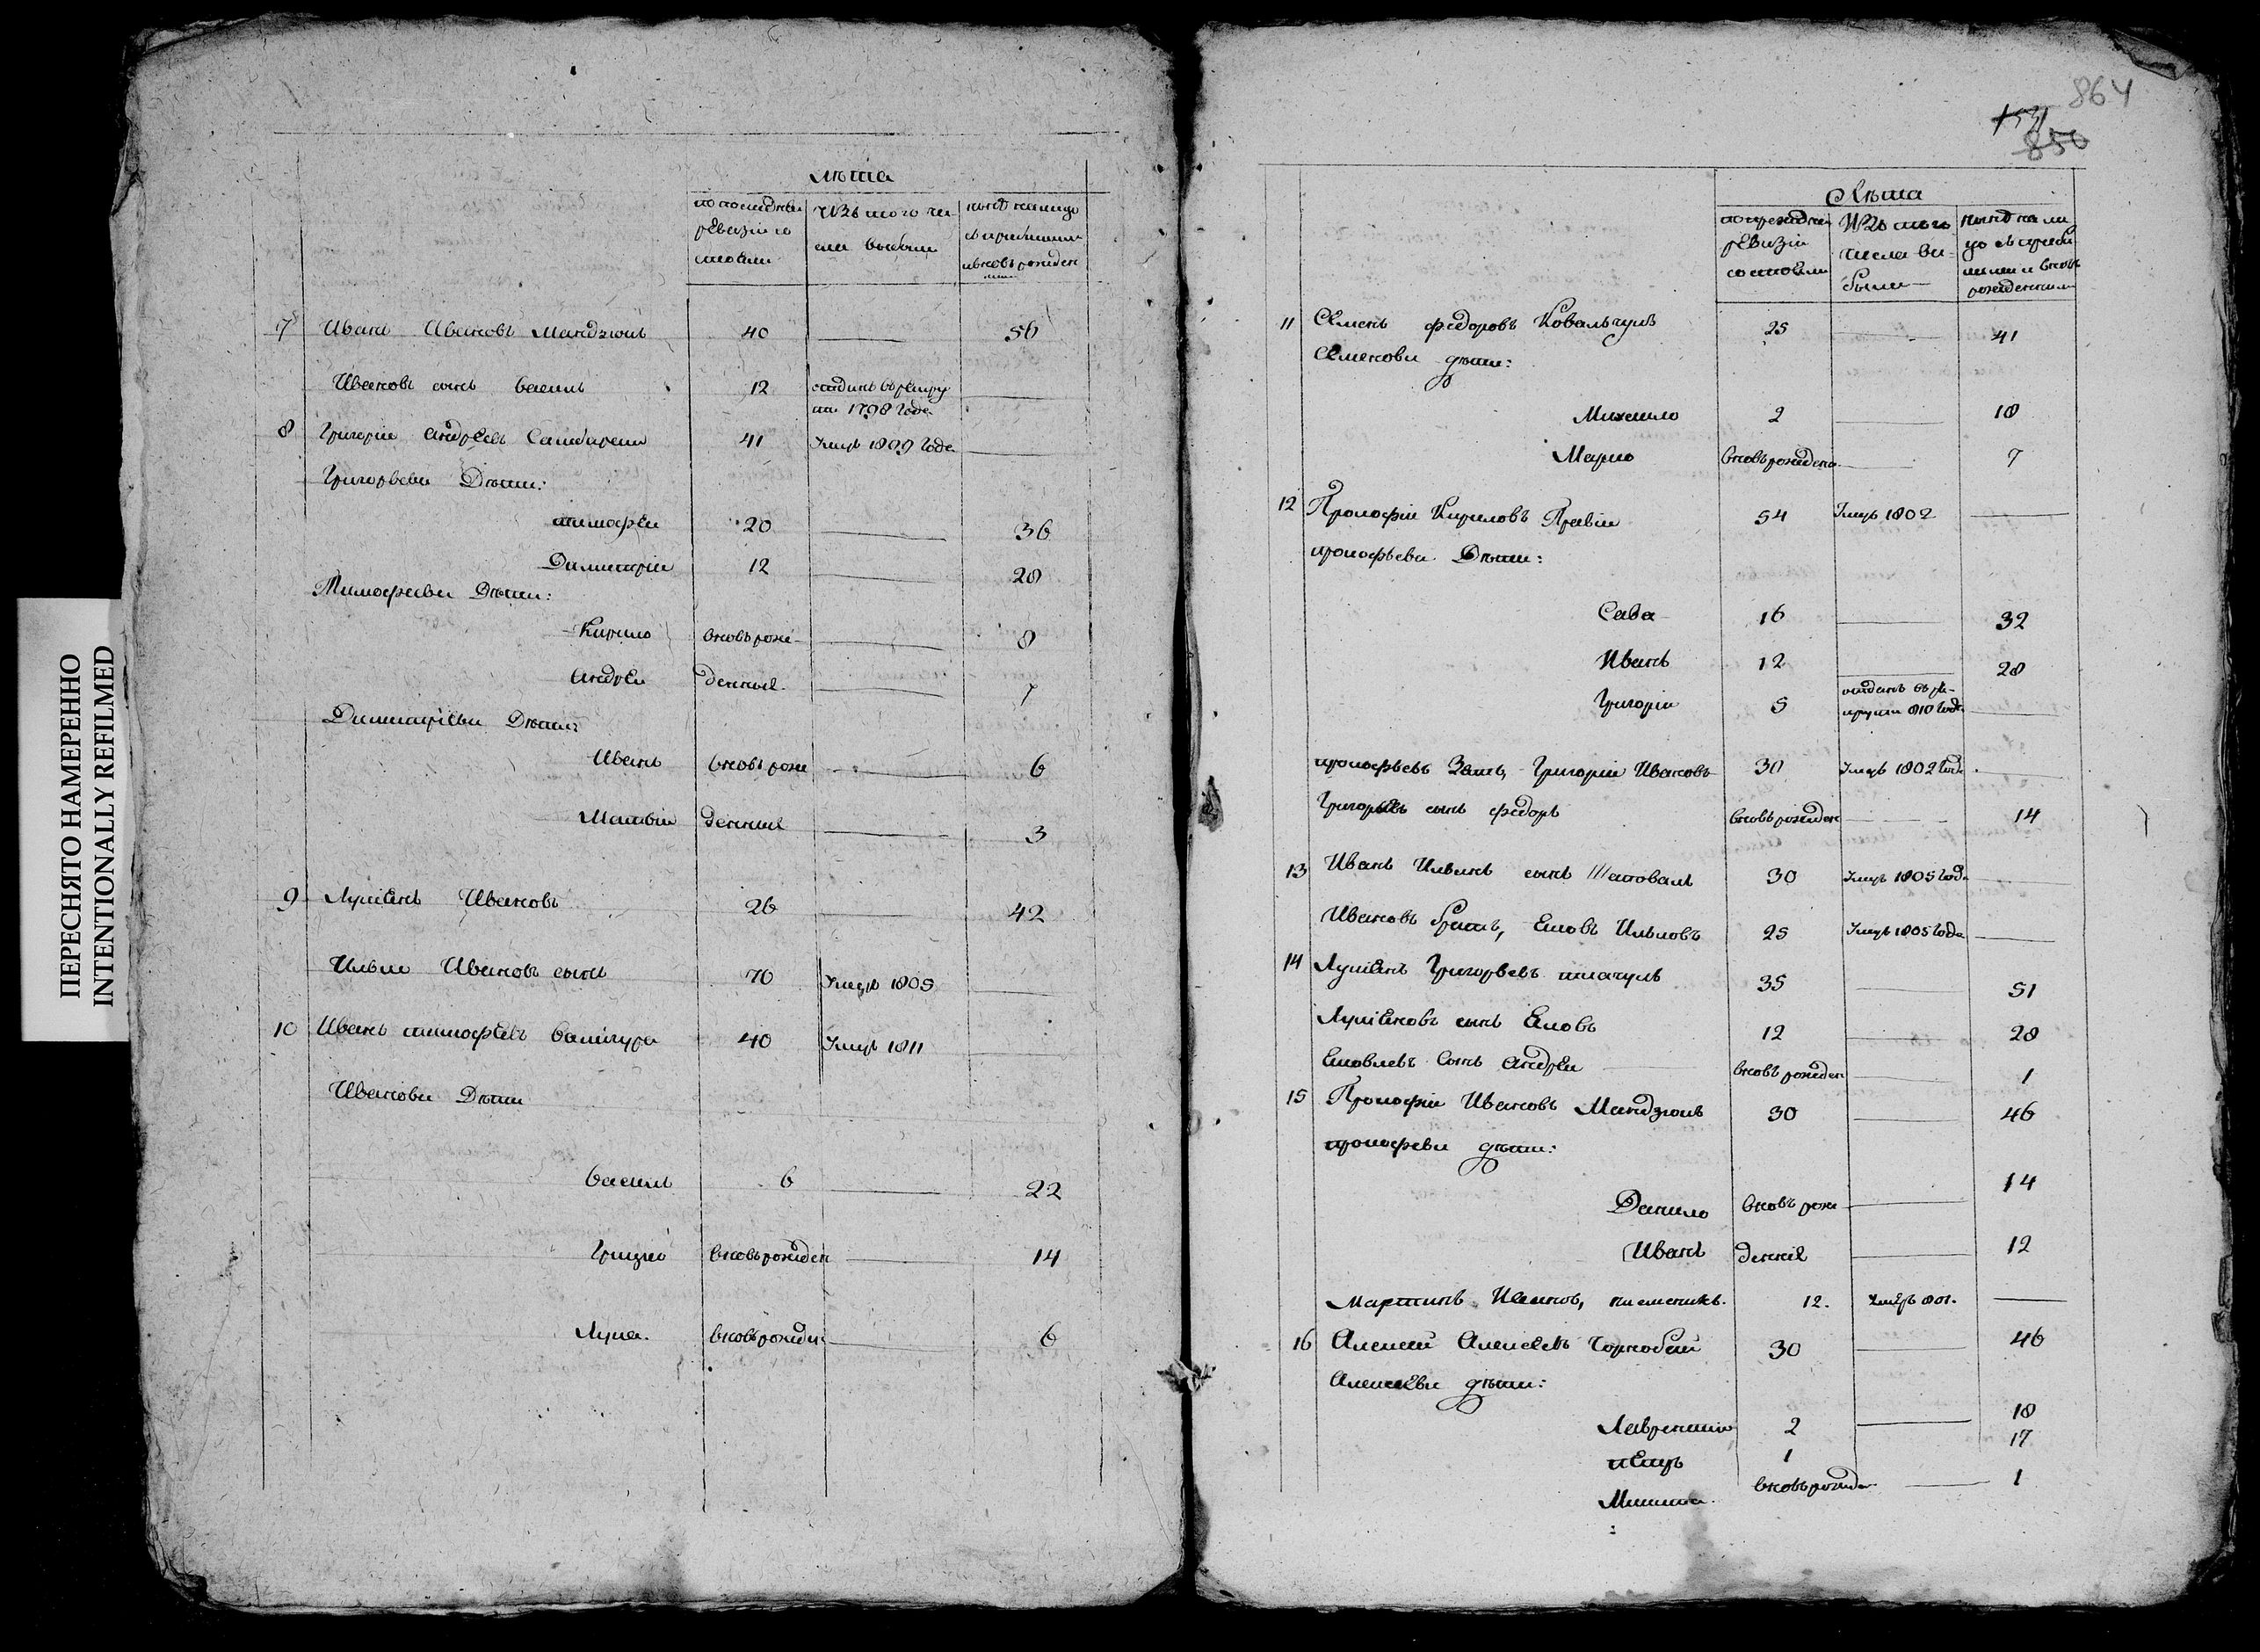 ПЕРЕСНЯТО НАМЕРЕННО
INTENTIONALLY REFILMED
лѣта
по последней ревизіи состояли
Изъ того числа выбыли
ныне налицо съ прибылыми и вновь рожденными
7 Иванъ Ивановъ Мандзюкъ 40 56
Ивановъ сынъ василь 12 отданъ въ рекруты 1798 года
8 Григорій андреевъ 41 Умръ 1809 года
Григорьеви Дѣти:
тимофей 20 36
Димитрій 12 28
Тимофееви Дѣти:
Кирило вновь рож- 8
андрей денныя 7
Димитріеви Дѣти:
Иванъ вновь рож 6
Матвій денныя 3
9 Лукіенъ Ивановъ 26 42
Илья Ивановъ сынъ 70 Умръ 1805
10 Иванъ тимофеевъ 40 Умръ 1811
Иванови Дѣти
василь 6 22
Грицко вновь рожден 14
Лука вновь рожден 6
864
850
Лѣта
по последней ревизіи состояли
Изъ того числа выбыли
ныне на лицо съ прибылыми и вновь рожденными
11 Семенъ федоровъ Ковальчукъ 25 41
Семенови дѣти:
Михайло 2 18
Марко вновь рожденъ 7
12 Прокофій Кириловъ 54 Умръ 1802
прокофьеви Дѣти:
Сава 16 32
Иванъ 12 28
Григорій 5 отданъ въ рекруты 810 года
прокофьевъ Зять, Григорій Ивановъ 30 Умръ 1802 года
Григорьевъ сынъ федоръ вновь рожден 14
13 Иванъ Ильинъ сынъ Шаповалъ 30 Умръ 1805 года
Ивановъ братъ, Яковъ Ильковъ 25 Умръ 1805 года
14 Лукіенъ Григорьевъ ткачукъ 35 51
Лукіеновъ сынъ Яковъ 12 28
Яковлевъ Сынъ андрей вновь рожден 1
15 Прокофій Ивановъ Мандзюкъ 30 46
прокофеви дѣти:
Данило вновь рож 14
Иванъ денныя 12
Мартинъ Ивановъ, племеникъ. 12. Умеръ 801.
16 Алексей Алексеевъ Чорнобай 30 46
Алексееви дѣти:
Лаврентій 2 18
петръ 1 17
Микита вновь рожден 1